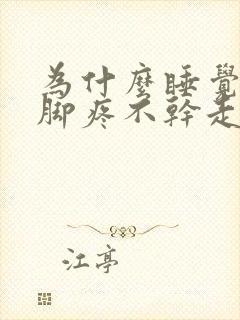 為什麼睡覺
腳疼不幹走
江亭